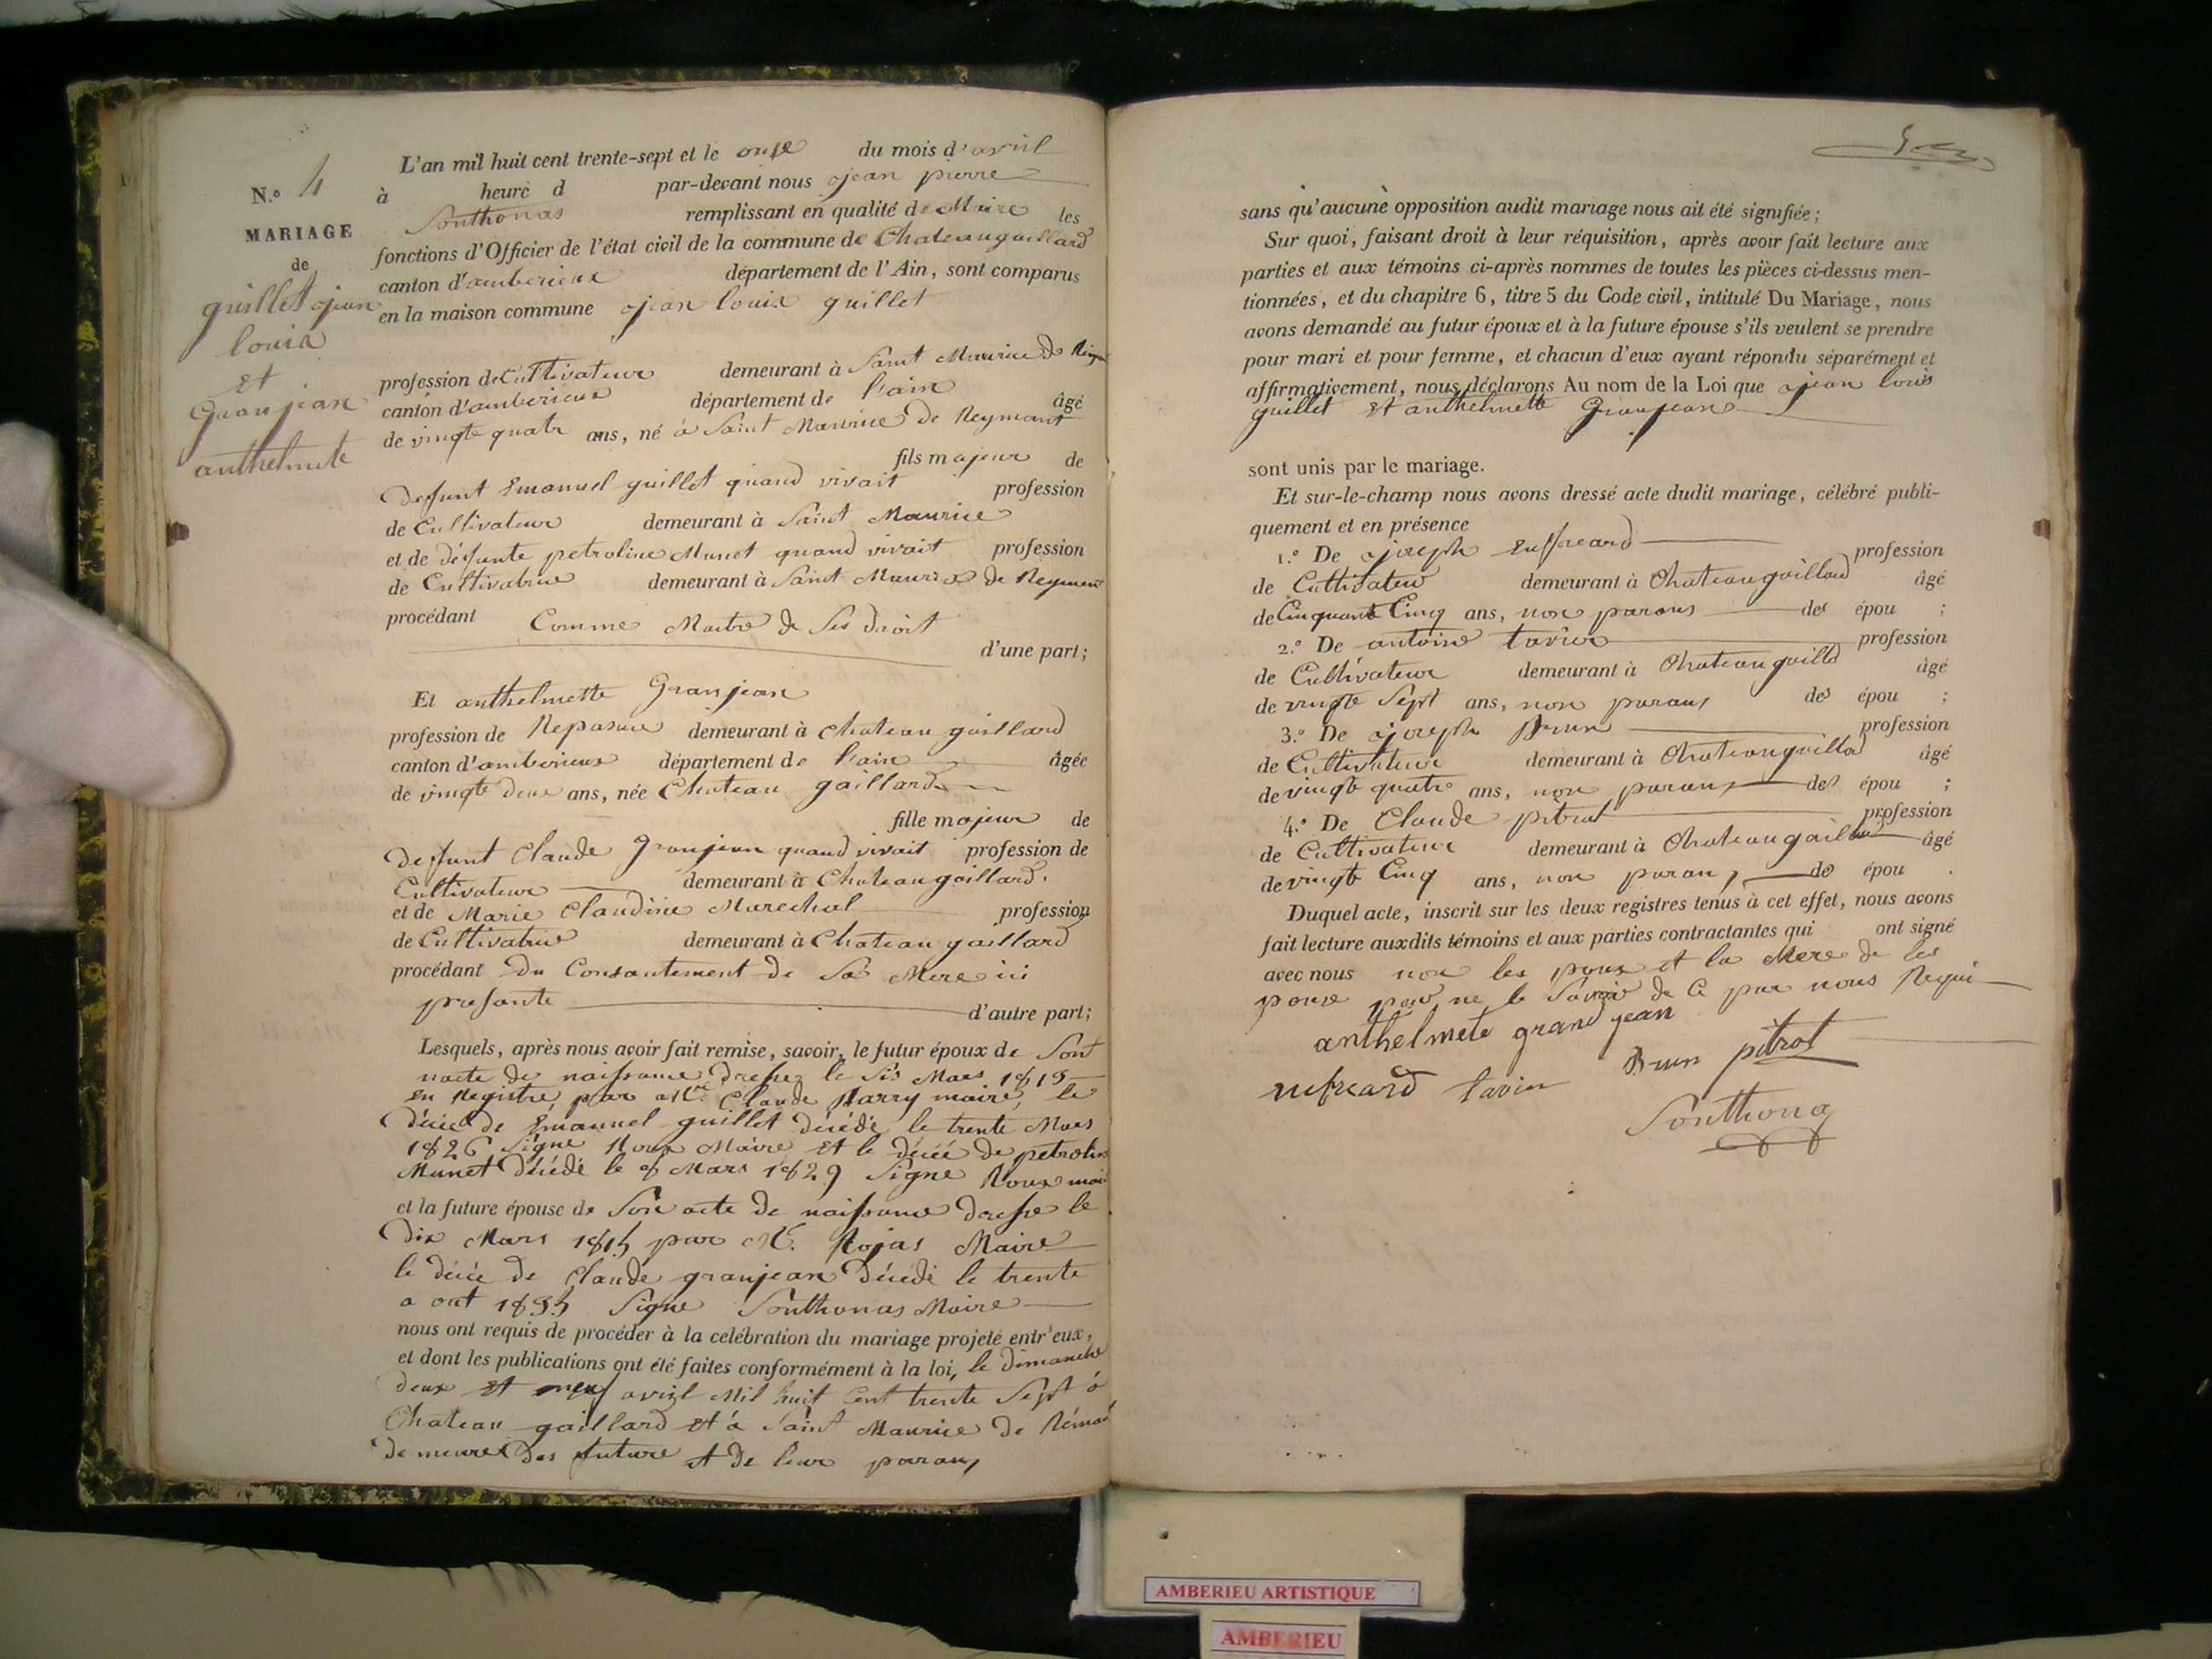 N.º 4
MARIAGE
de
guillet jean
louis
Et
Granjean
anthelmete
L'an mil huit cent trente-sept et le onze du mois d'avril
à heure d par-devant nous jean pierre
Sonthonas remplissant en qualité de Maire les
fonctions d'Officier de l'état civil de la commune de Chateaugaillard
canton d'amberieux département de l'Ain, sont comparus
en la maison commune jean louis guillet
profession de Cultivateur demeurant à Saint Maurice de
canton d'amberieux département de l'ain âgé
de vingt quatr ans, né à Saint Maurice de Reymant
fils majeur de
Deffunt Emanuel guillet quand vivait profession
de Cultivateur demeurant à Saint Maurice
et de défunte petroline Munet quand vivait profession
de Cultivatrice demeurant à Saint Maurice de
procédant Comme Maitre de Ses droit
d'une part;
Et anthelmette Granjean
profession de demeurant à Chateau gaillard
canton d'amberieux département de l'ain âgée
de vingt deux ans, née Chateau gaillard
fille majeur de
Deffunt Claude Granjean quand vivait profession de
Cultivateur demeurant à Chateaugaillard.
et de Marie Claudine Marechal profession
de Cultivatrice demeurant à Chateau gaillard
procédant Du Consantement de Sa Mere ici
presante d'autre part;
Lesquels, après nous avoir fait remise, savoir, le futur époux de Son
nacte de naissance Dresse le Sis Mars 1813
en Registre par Mr. Claude Marry maire, le
Décée de Emanuel guillet Décédé le trente Mars
1826 Signe Roux Maire et le Décée de petroline
Munet Décédé le 8 Mars 1829 Signe Roux
et la future épouse de Son acte de naissance dresse le
Dix Mars 1815 par M. Rojas Maire
le Décée de Claude granjean Décédé le trente
a out 1835 Signe Sonthonas Maire
nous ont requis de procéder à la celébration du mariage projeté entr'eux,
et dont les publications ont été faites conformément à la loi, le dimanche
deux et neuf avril Mil huit Cent trente Sept à
Chateau gaillard et à Saint Maurice de
de meure des future et de leur paran,
sans qu'aucune opposition audit mariage nous ait été signifiée;
Sur quoi, faisant droit à leur réquisition, après avoir fait lecture aux
parties et aux témoins ci-après nommes de toutes les pièces ci-dessus men-
tionnées, et du chapitre 6, titre 5 du Code civil, intitulé Du Mariage, nous
avons demandé au futur époux et à la future épouse s'ils veulent se prendre
pour mari et pour femme, et chacun d'eux ayant répondu séparément et
affirmativement, nous déclarons Au nom de la Loi que jean louis
guillet Et anthelmette Granjean
sont unis par le mariage.
Et sur-le-champ nous avons dressé acte dudit mariage, célébré publi-
quement et en présence
1.º De joseph profession
de Cultivateur demeurant à Chateaugaillard âgé
de Cinquante Cinq ans, non parans des épou ;
2.º De antoine tavier profession
de Cultivateur demeurant à Chateaugailld âgé
de vingt Sept ans, non paran, des épou ;
3.º De joseph Brun profession
de Cultivateur demeurant à Chateaugaillad âgé
de vingt quatre ans, non paran, des épou ;
4.º De Claude pitrat profession
de Cultivateur demeurant à Chateaugaillard âgé
de vingt Cinq ans, non paran, des épou .
Duquel acte, inscrit sur les deux registres tenus à cet effet, nous avons
fait lecture auxdits témoins et aux parties contractantes qui ont signé
avec nous non les poux et la Mere de les
pouse pour ne le Savoir de Ce par nous Requi
anthelmete grand jean
Brun pitrat
tavier
Sonthona
AMBERIEU ARTISTIQUE
AMBERIEU